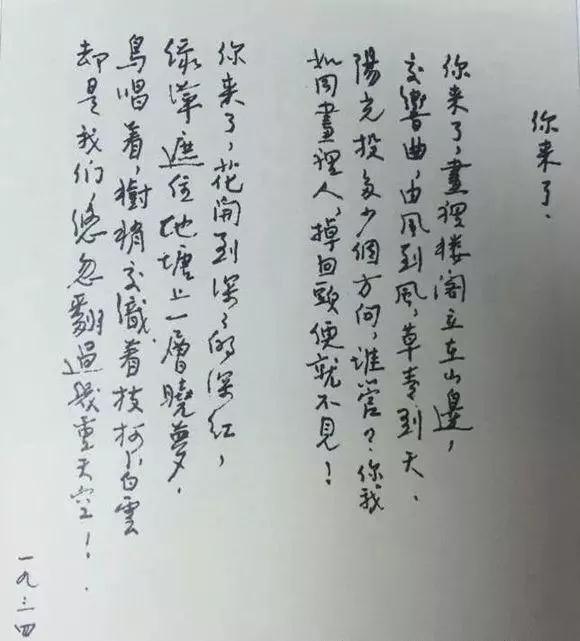 你来了、
你来了,畫裡楼阁立在山邊,
交響曲,由風到風,草青到天、
陽光投多少個方向,誰管?你,我
如同畫裡人,掉回頭便就不見!
你来了,花開到深深的深红,
绿萍遮住池塘上一層曉夢,
鳥唱着,樹梢交織着枝柯,白雲
却是我们悠忽翻過幾重天空!
一九三四